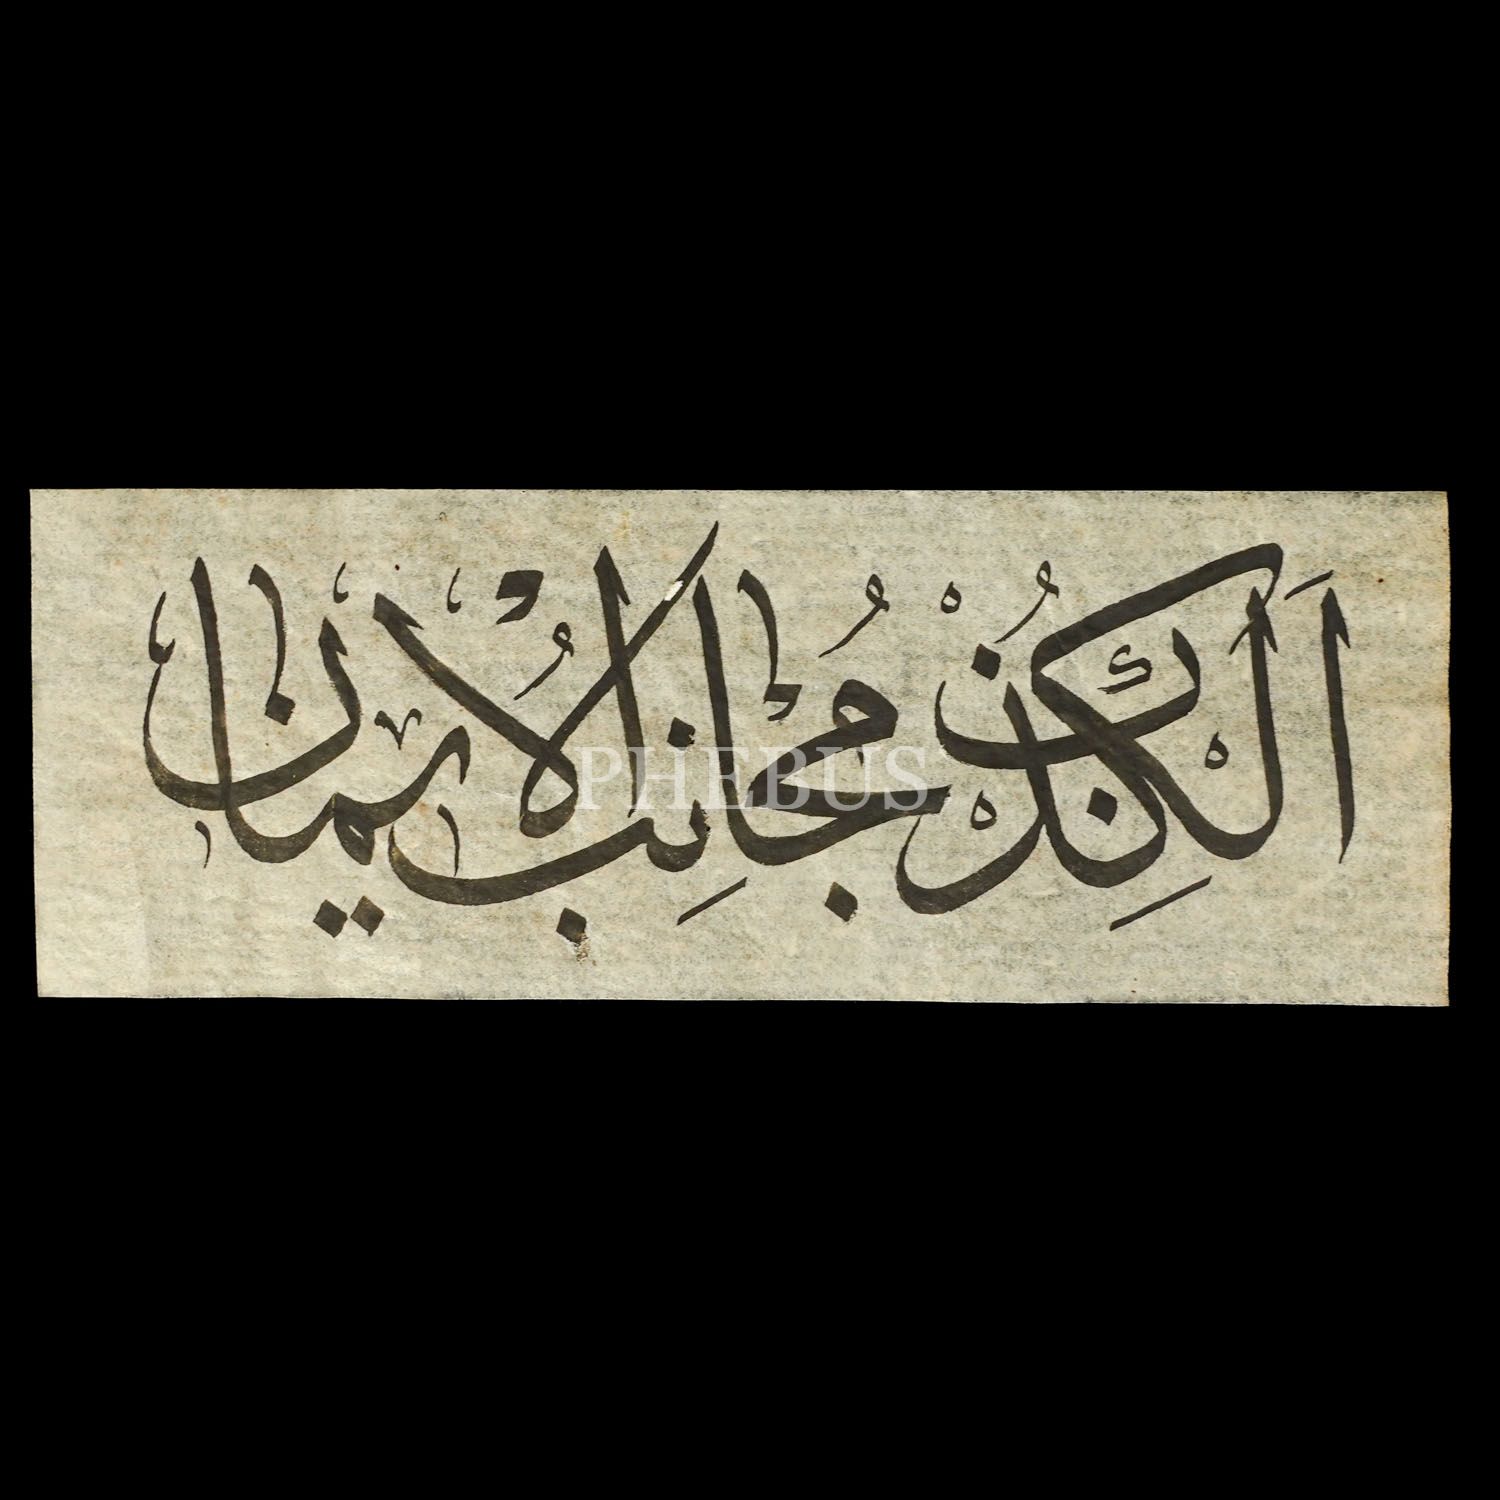 اَلْكِذْبُ مُجَانِبُ الْاِيمَانِ
PHEBUS